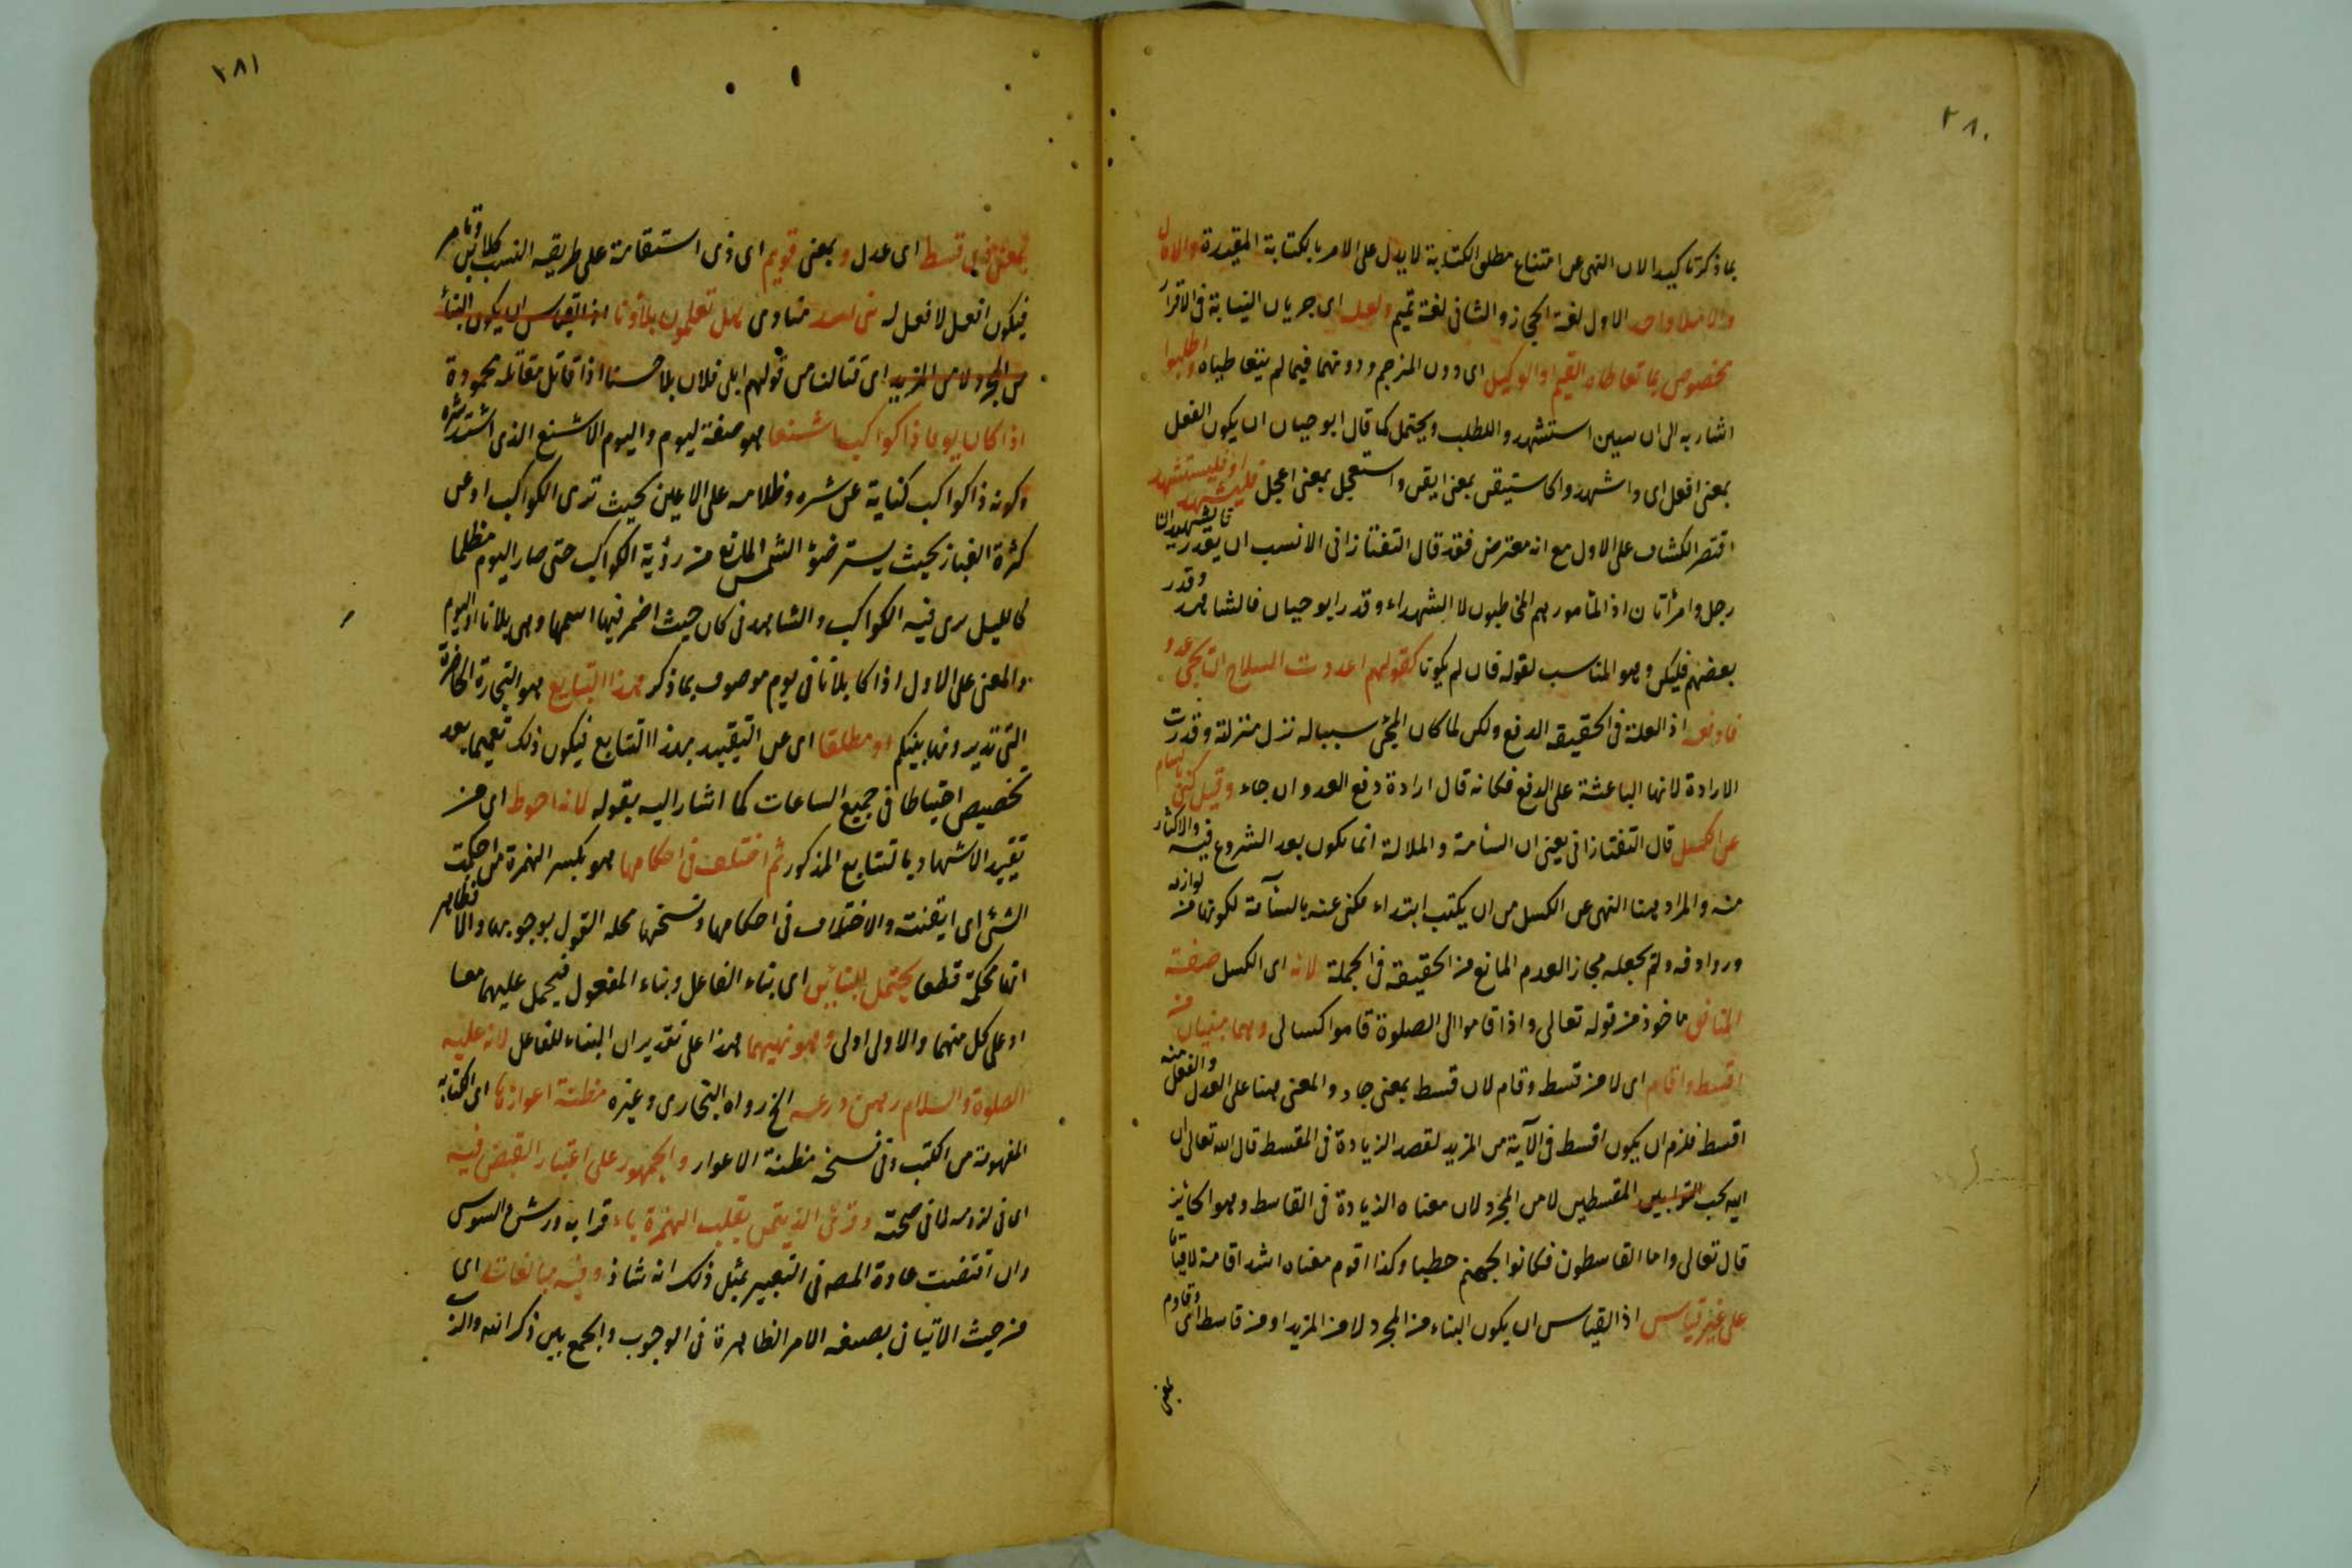 ٢٨٠
بما ذكر تاكيد الان النهى عن امتناع مطلق الكتابة لا يدل على الامر بالكتابة المقيدة والاملال
والاملاء واحد الاول لغة الحجاز والثانى لغة تميم ولعله اى جريان النيابة فى الاقرار
مخصوص بما تعاطاه القيم او الوكيل اى دون المترجم ودونهما فيما لم يتعاطياه واطلبوا
اشار به الى ان سين استشهد والطلب ويحتمل كما قال ابو حيان ان يكون الفعل
بمعنى افعل اى واشهدوا كاستيقن بمعنى ايقن واستعجل بمعنى اعجل فليشهد او فليستشهد
اقتصر الكشاف على الاول مع انه معترض فقد قال التفتازانى الانسب ان يقدر
رجل وامرأتان اذ المأمور هم المخاطبون لا الشهداء وقدر ابو حيان فالشاهد وقدر
بعضهم فليكن وهو المناسب لقوله فان لم يكونا كقولهم اعددت السلاح ان يجئ عدو
فادفعه اذ العلة فى الحقيقه الدفع ولكن لما كان المجئ سببا له نزل منزلته وقدرت
الارادة لانها الباعثة على الدفع فكانه قال ارادة دفع العدو ان جاء وقيل كنى بالسام
عن الكسل قال التفتازانى يعنى ان السأمة والملالة انما يكون بعد الشروع فيه والاكثار
منه والمراد هنا النهى عن الكسل من ان يكتب ابتداء فكنى عنه بالسآمة لكونها من لوازمه
وروادفه ولم يجعله مجاز العدم المانع من الحقيقة فى الجملة لانه اى الكسل صفة
المنافق ماخوذ من قوله تعالى واذا قاموا الى الصلوة قاموا كسالى وهما مبنيان من
اقسط واقام اى لا من قسط وقام لان قسط بمعنى جار والمعنى هنا على العدل والفعل منه
اقسط فلزم ان يكون اقسط فى الآية من المزيد لقصد الزيادة فى المقسط قال الله تعالى ان
الله يحب المقسطين لا من المجرد لان معناه الزيادة فى القاسط وهو الجائر
قال تعالى واما القاسطون فكانوا لجهنم حطبا وكذا اقوم معناه اشد اقامة لا قياما
على غير قياس اذ القياس ان يكون البناء من المجرد لا من المزيد او من قاسط
بمعنى
٢٨١
بمعنى ذى قسط اى عدل وبمعنى قويم اى ذى استقامة على طريقه النسب كلابن وتامر
فيكون افعل لا فعل له بنى اسد منادى هل تعلمون بلاءنا اذ القياس ان يكون البناء
من المجرد لا من المزيد اى قتالنا من قولهم ابلى فلان بلاء حسنا اذا قاتل مقاتلة محمودة
اذا كان يوما ذا كواكب اشنعا هو صفة ليوم واليوم الاشنع الذى اشتد شره
وكونه ذا كواكب كناية عن شره وظلامه على الاعين بحيث ترى الكواكب او عن
كثرة الغبار بحيث يستر ضوء الشمس المانع من رؤية الكواكب حتى صار اليوم مظلما
كالليل يرى فيه الكواكب والشاهد فى كان حيث اضمر فيها اسمها وهى بلاءنا او اليوم
والمعنى على الاول اذا كا بلاءنا فى يوم موصوف بما ذكر هذا التبايع هو التجارة الحاضرة
التى تديرونها بينكم او مطلقا اى عن التقييد بهذا التبايع فيكون ذلك تعميما بعد
تخصيص احتياطا فى جميع الساعات كما اشار اليه بقوله لانه احوط اى من
تقييد الاشهاد بالتبايع المذكور ثم اختلف فى احكامها هو بكسر الهمزة من احكمت
الشئ اى ايقنته والاختلاف فى احكامها ونسخها محله القول بوجوبها والا فظاهر
انها محكمة قطعا يحتمل البنائين اى بناء الفاعل وبناء المفعول فيحمل عليهما معا
او على كل منهما والاولى اولى وهو نهيهما هذا على تقدير ان البناء للفاعل لانه عليه
الصلوة والسلام رهن درعه الخ رواه البخارى وغيره مظنة اعوازها اى الكتابة
المفهومة من الكتب وفى نسخه مظنة الاعواز والجمهور على اعتبار القبض فيه
اى فى لزومه لا فى صحته وقرئ الذيتمن بقلب الهمزة ياء قرا به ورش والسوسى
وان اقتضت عادة المصه فى التعبير بمثل ذلك انه شاذ وفيه مبالغات اى
من حيث الاتيان بصيغه الامر الظاهرة فى الوجوب والجمع بين ذكر الله والرب